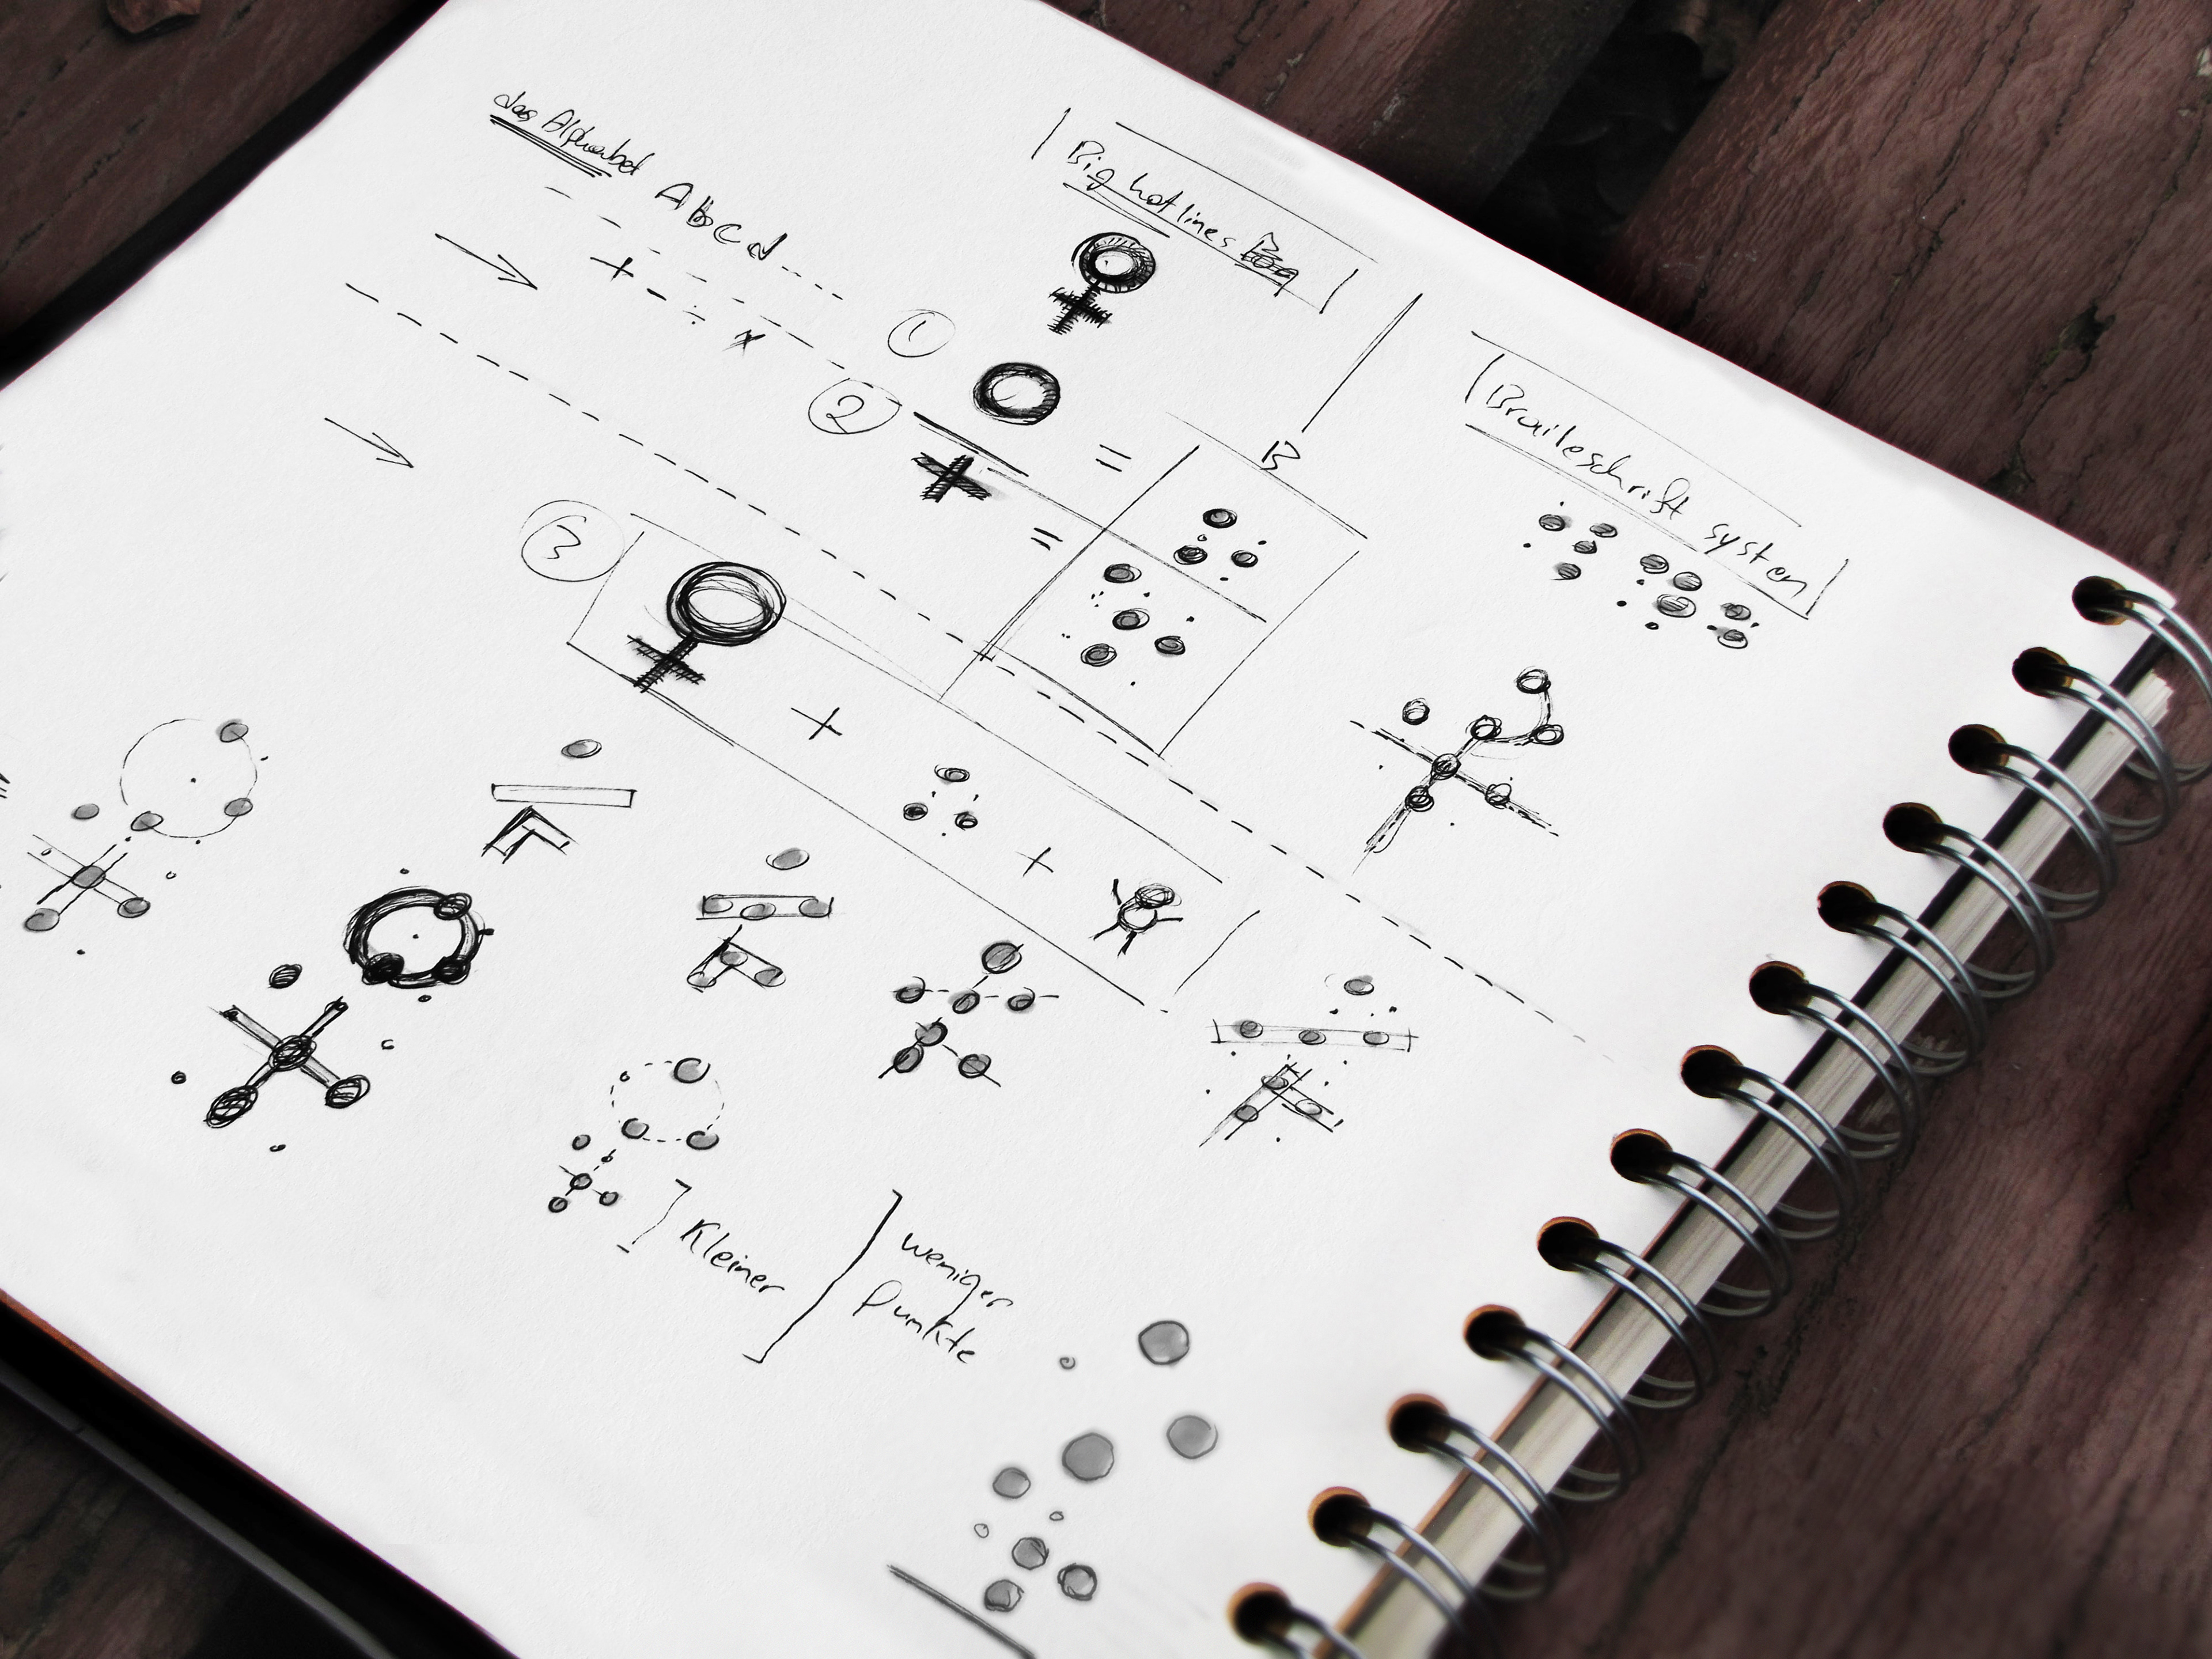 das Alphabet
Abcd.....
+ - ÷ x
Big hotlines
1
2
=
B
=
3
+
+
Braileschrift system
Kleiner
weniger
Punkte